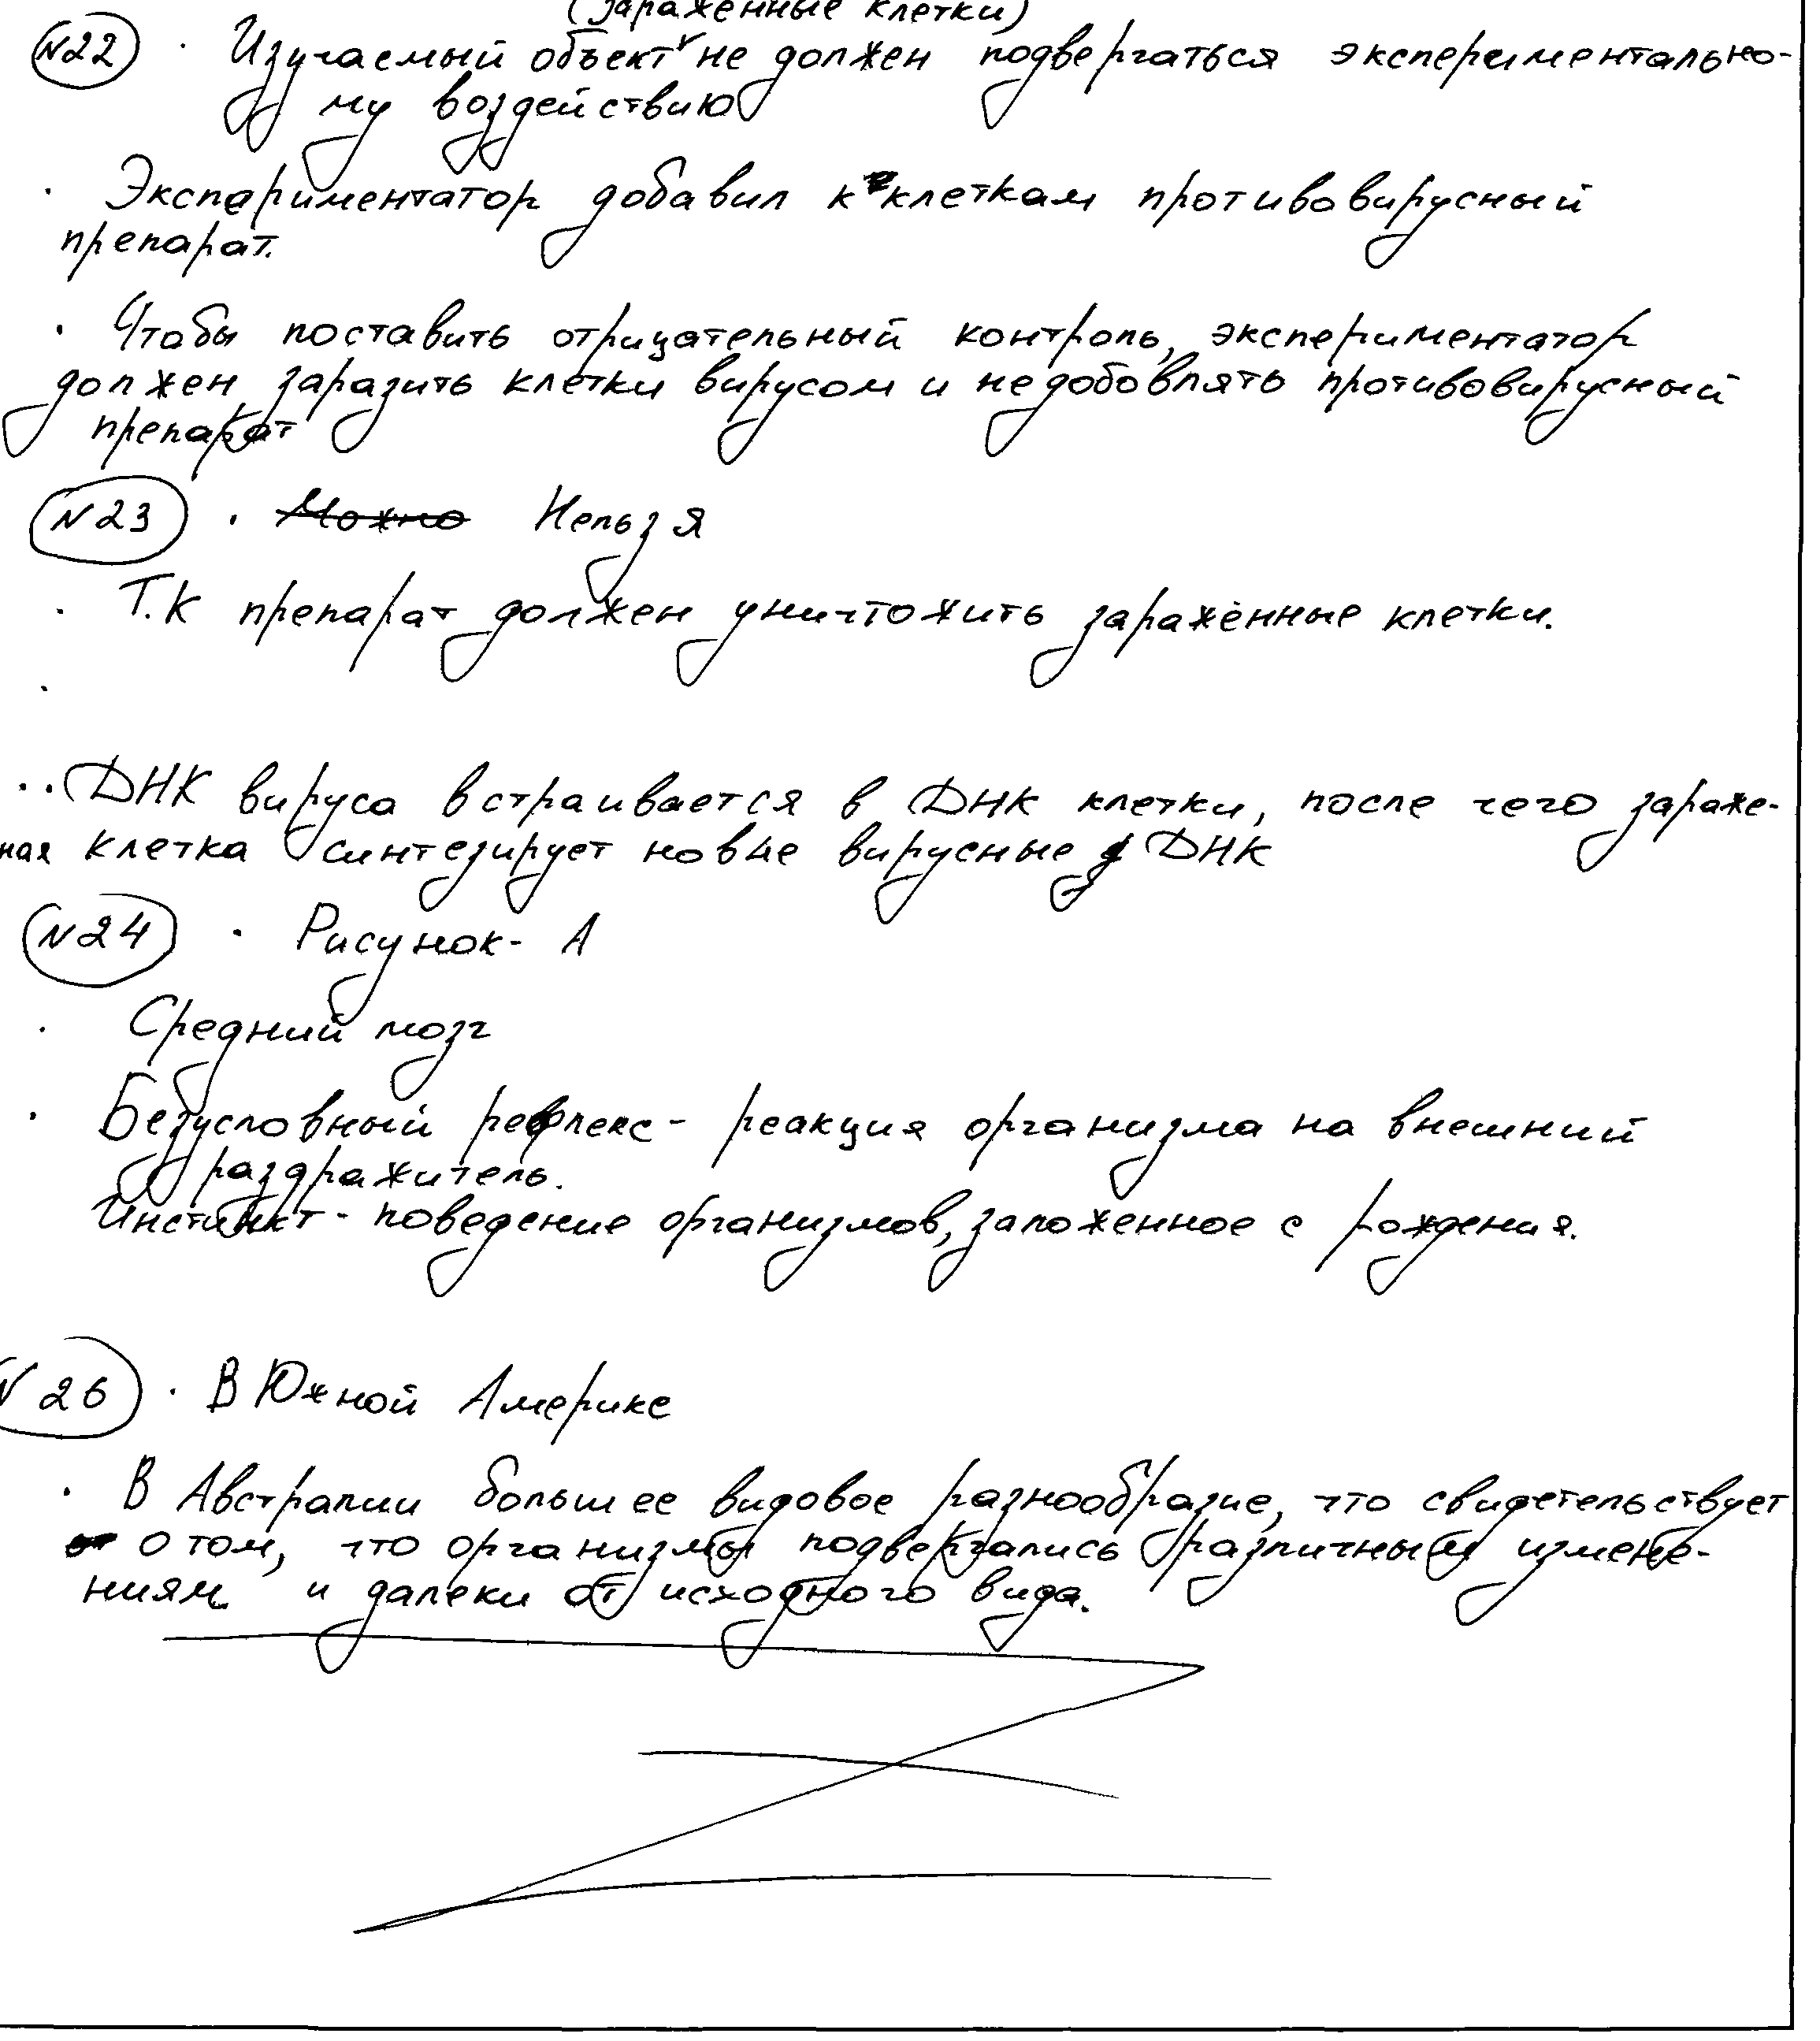 (заражённые клетки)
N22 · Изучаемый объект не должен подвергаться экспериментально-
му воздействию
· Экспериментатор добавил к клеткам противовирусный
препарат.
· Чтобы поставить отрицательный контроль, экспериментатор
должен заразить клетки вирусом и не добовлять противовирусный
препарат
N23 · Можно Нельзя
· Т.К препарат должен уничтожить заражённые клетки.
·
·· ДНК вируса встраивается в ДНК клетки, после чего зараже-
ная клетка синтезирует новые вирусные ДНК
N24 · Рисунок- А
· Средний мозг
· Безусловный рефлекс - реакция организма на внешний
раздражитель.
Инстинкт - поведение организмов, заложенное с рождения.
N 26 · В Южной Америке
· В Австралии большее видовое разнообразие, что свидетельствует
о том, что организмы подвергались различным измене-
ниям и далеки от исходного вида.